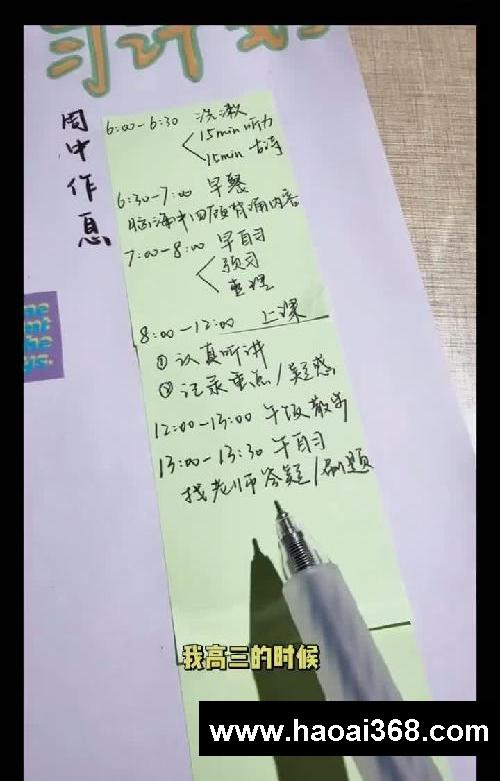 习计划
周中作息
6:00-6:30 洗漱
15min 听力
15min 古诗
6:30-7:00 早餐
脑海中回顾背诵内容
7:00-8:00 早自习
预习
整理
8:00-12:00 上课
① 认真听讲
② 记录重点/疑惑
12:00-13:00 午饭散步
13:00-13:30 午自习
找老师答疑/刷题
我高三的时候
www.haoai368.com